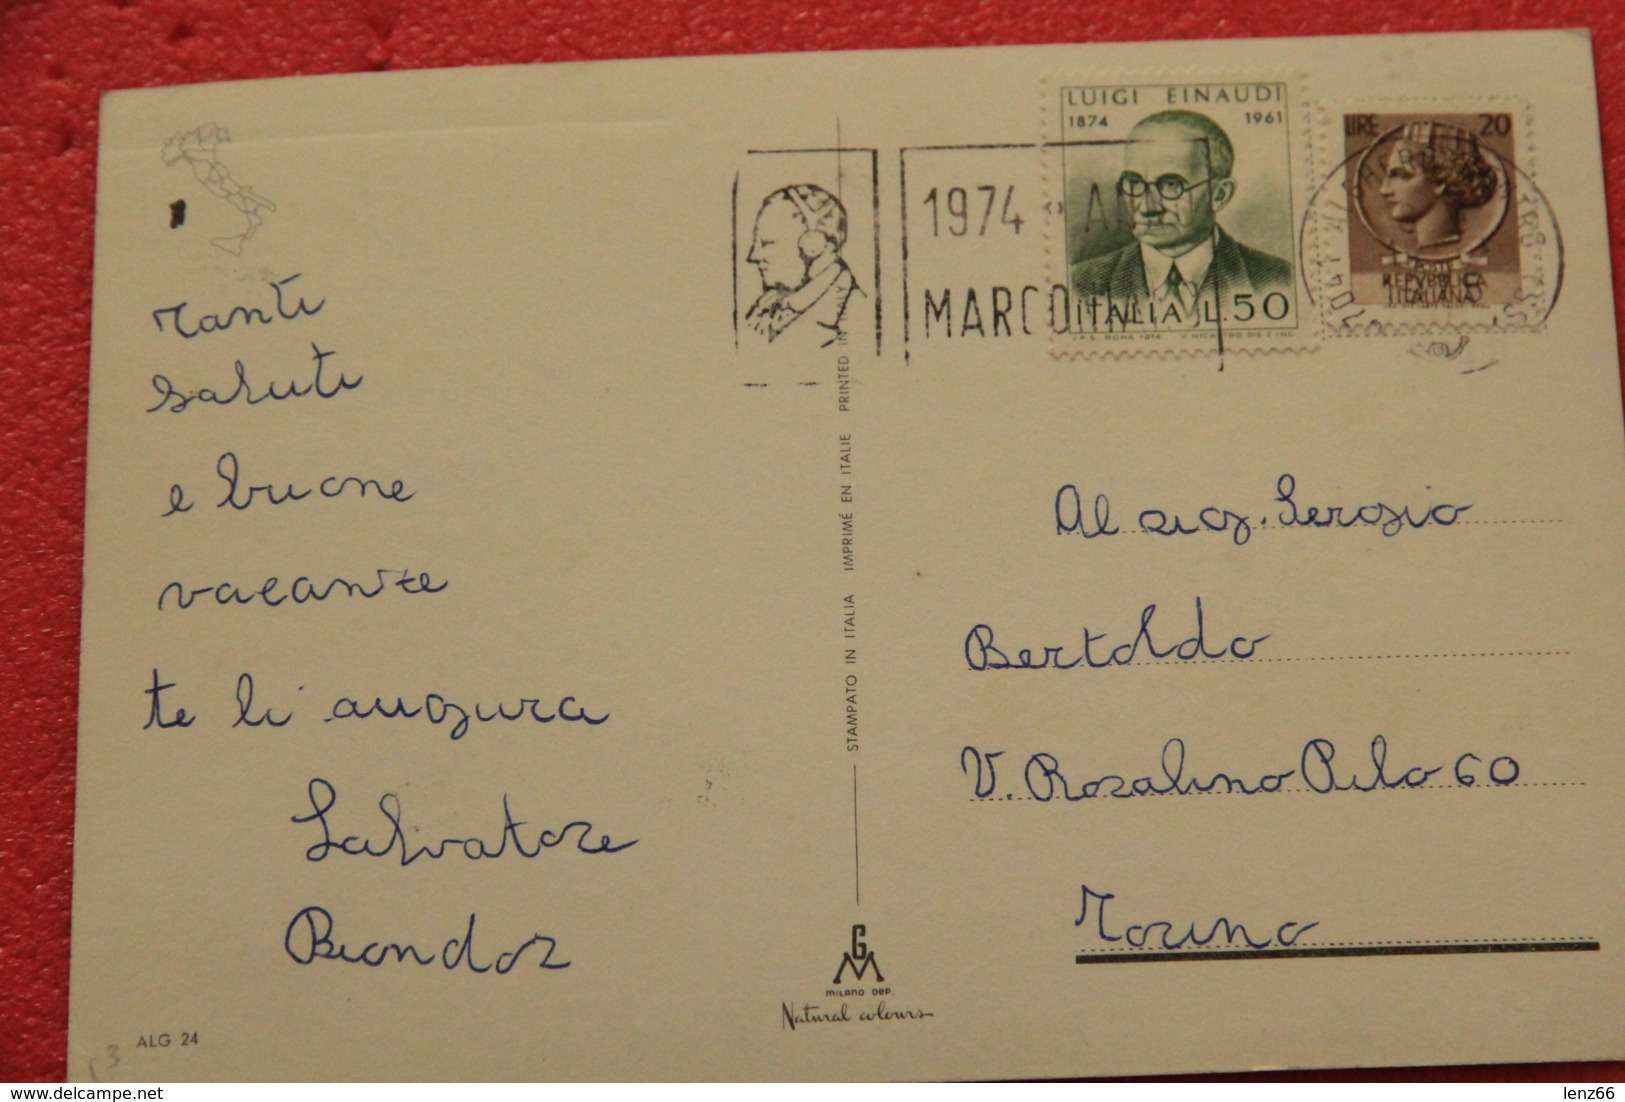 Tanti
saluti
e buone
vacanze
te li augura
Salvatore
ALG 24
1974
MARCONI
LUIGI EINAUDI
1874 1961
ITALIA L.50
I.P.S. ROMA 1974
LIRE 20
POSTE
REPVBBLICA
ITALIANA
STAMPATO IN ITALIA IMPRIMÉ EN ITALIE PRINTED IN ITALY
GM
MILANO DEP.
Natural colours
Al sig. Sergio
Bertoldo
V. Rosalino Pilo 60
Torino
delcampe.net
lenz66